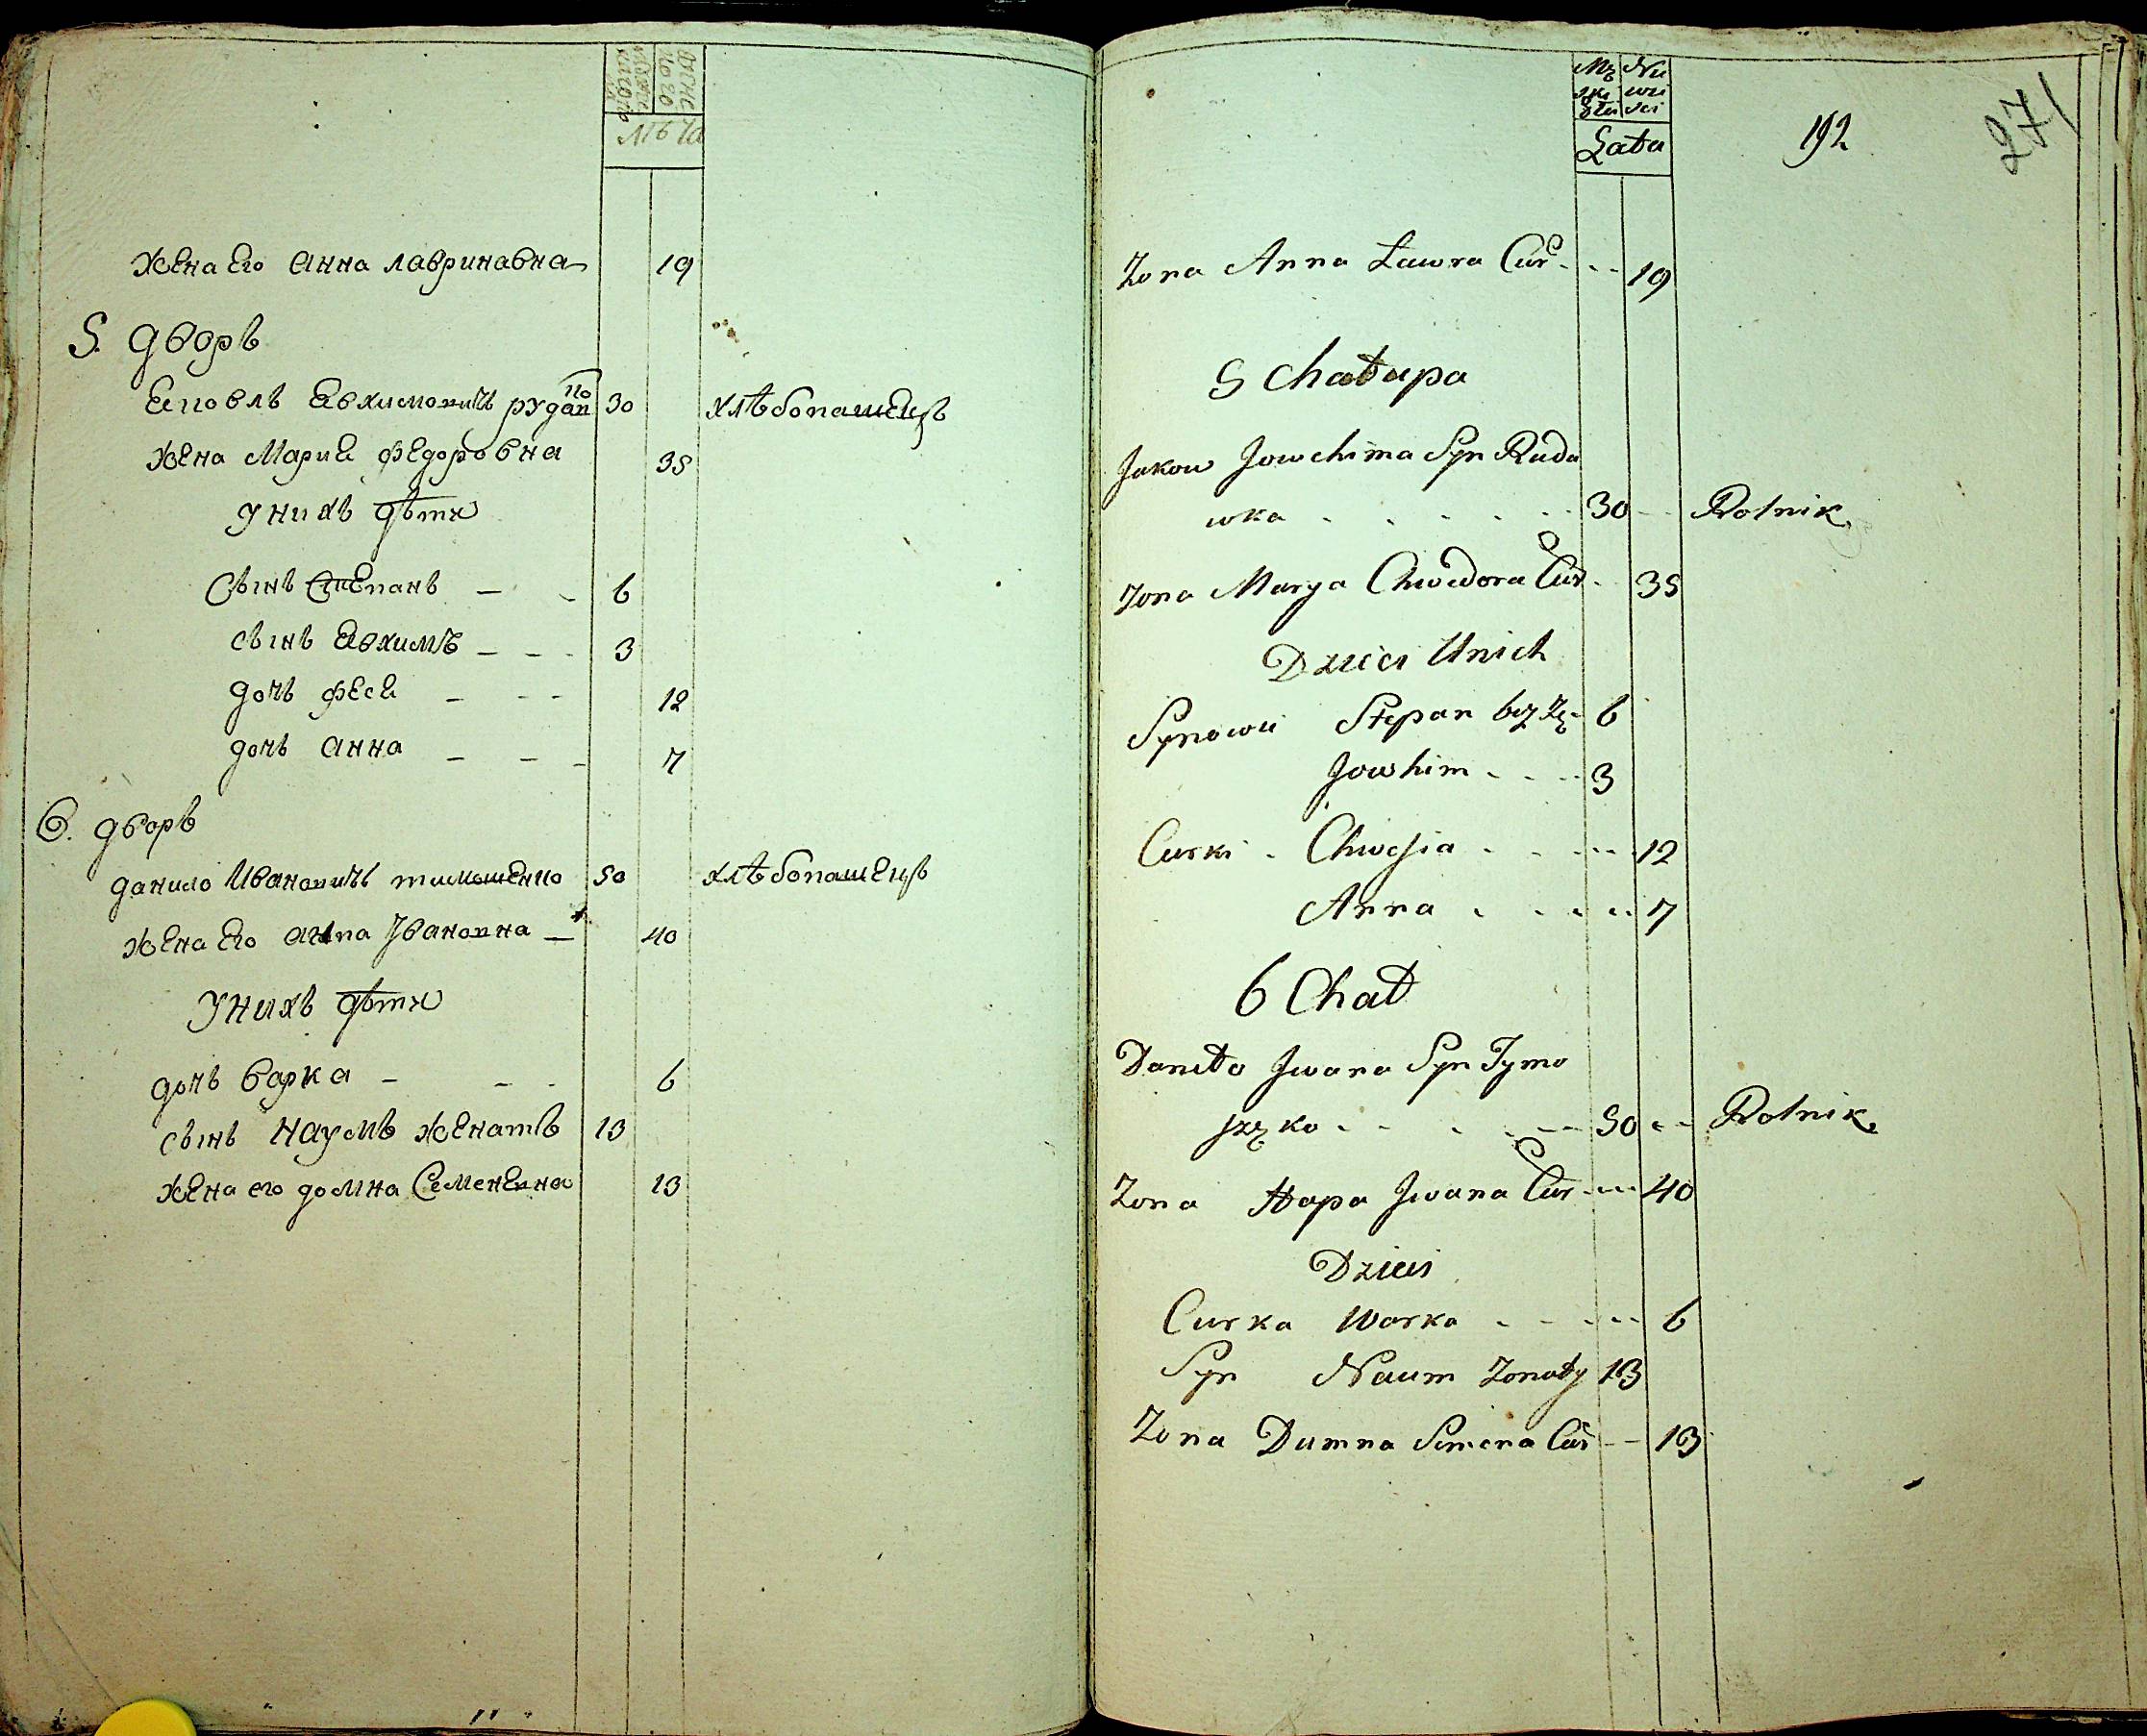 Лѣта
жена его анна лавринавна 19
5. дворъ
Еповль Евхимовичъ рудап 30 хлѣбопашецъ
по
жена Марие федоровна 35
у нихъ дѣти
сынъ Степанъ — - 6
сынъ Евхимъ — - - 3
дочь фесе — - - 12
дочь анна — - - 7
6. дворъ
данило Ивановичъ тимошенко 50 хлѣбопашецъ
жена его Ивановна — 40
у нихъ дѣти
дочь варка — - - 6
сынъ наумъ женатъ 13
жена его домна Семеневна 13
Mę Nie
ski wie
Płei sci
Lata
192
271
Zona Anna Ławra Cur - - - 19
5 Chałupa
Jakow Jowchima Syn Ruda
wka - - - - - 30 - - Rolnik
Zona Marya Chwedora Cur - 35
Dzieci Unich
Synowie Stepan bez Zę - 6
Jowhim - - - 3
Curki - Chwesia - - - - 12
Anna - - - - 7
6 Chał
Daniło Jwana Syn Tymo
szęko - - - - - 50 - - Rolnik
Zona Hapa Jwana Cur - - - 40
Dzieci
Curka Warka - - - - 6
Syn Naum Zonaty 13
Zona Dumna Semena Cur - - 13